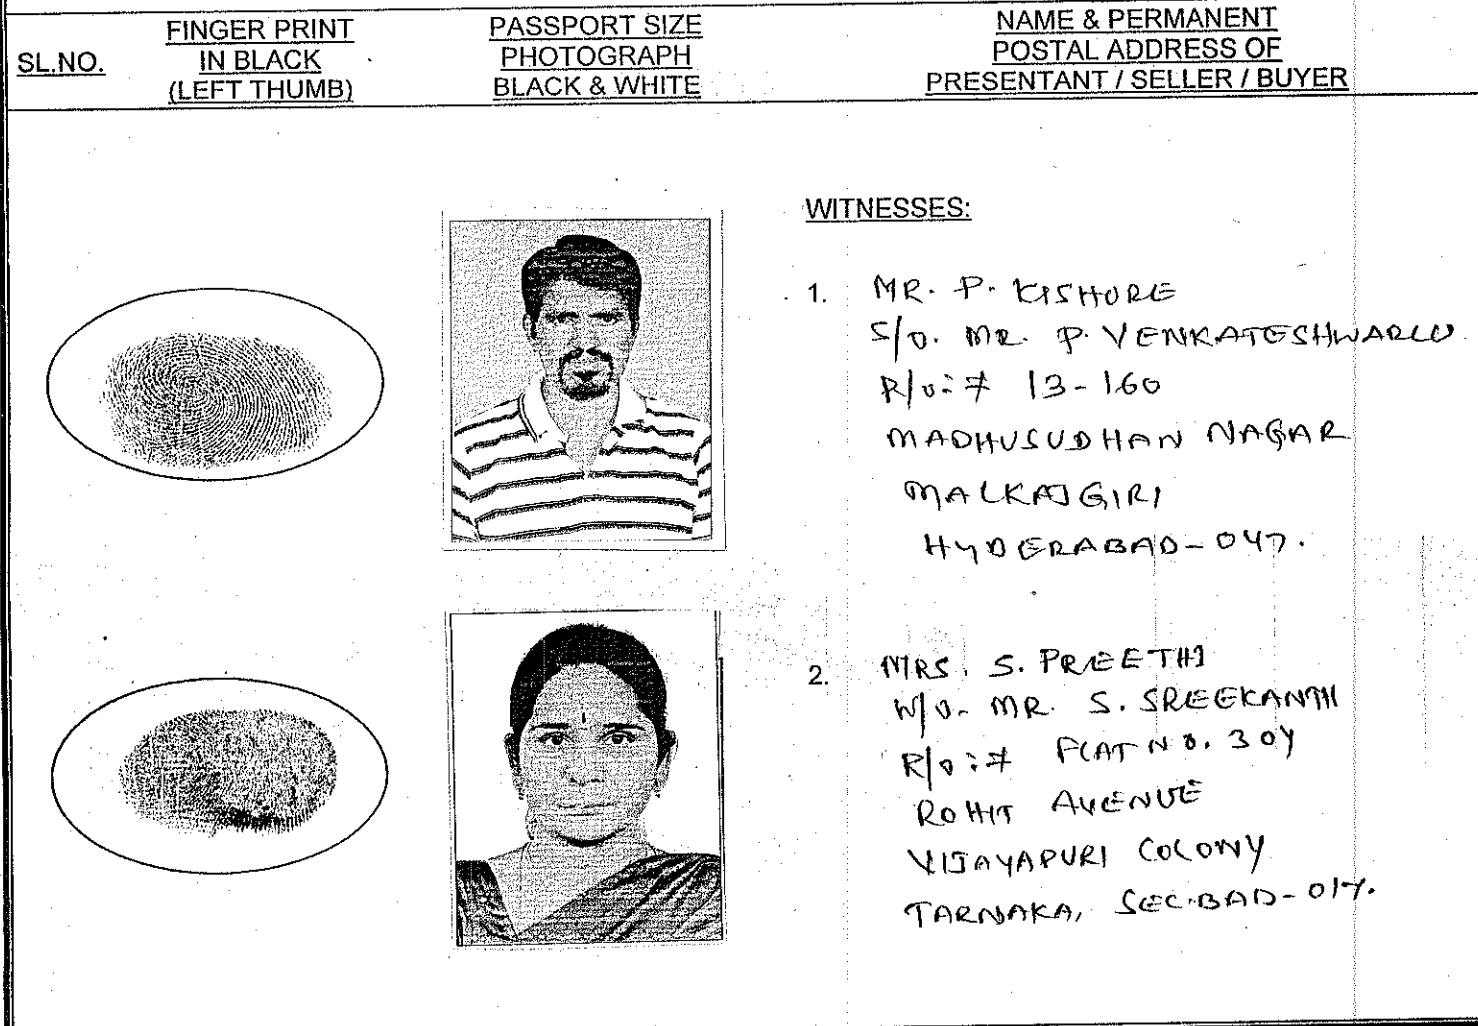 SL.NO.
FINGER PRINT
IN BLACK
(LEFT THUMB)
PASSPORT SIZE
PHOTOGRAPH
BLACK & WHITE
NAME & PERMANENT
POSTAL ADDRESS OF
PRESENTANT / SELLER / BUYER
WITNESSES:
1. MR. P. KISHORE
S/O. MR. P. VENKATESHWARLU
R/O:# 13-160
MADHUSUDHAN NAGAR
MALKAJGIRI
HYDERABAD-047.
2. MRS. S. PREETHI
W/O. MR. S. SREEKANTH
R/O:# FLAT NO. 304
ROHIT AVENUE
VIJAYAPURI COLONY
TARNAKA, SEC.BAD-017.